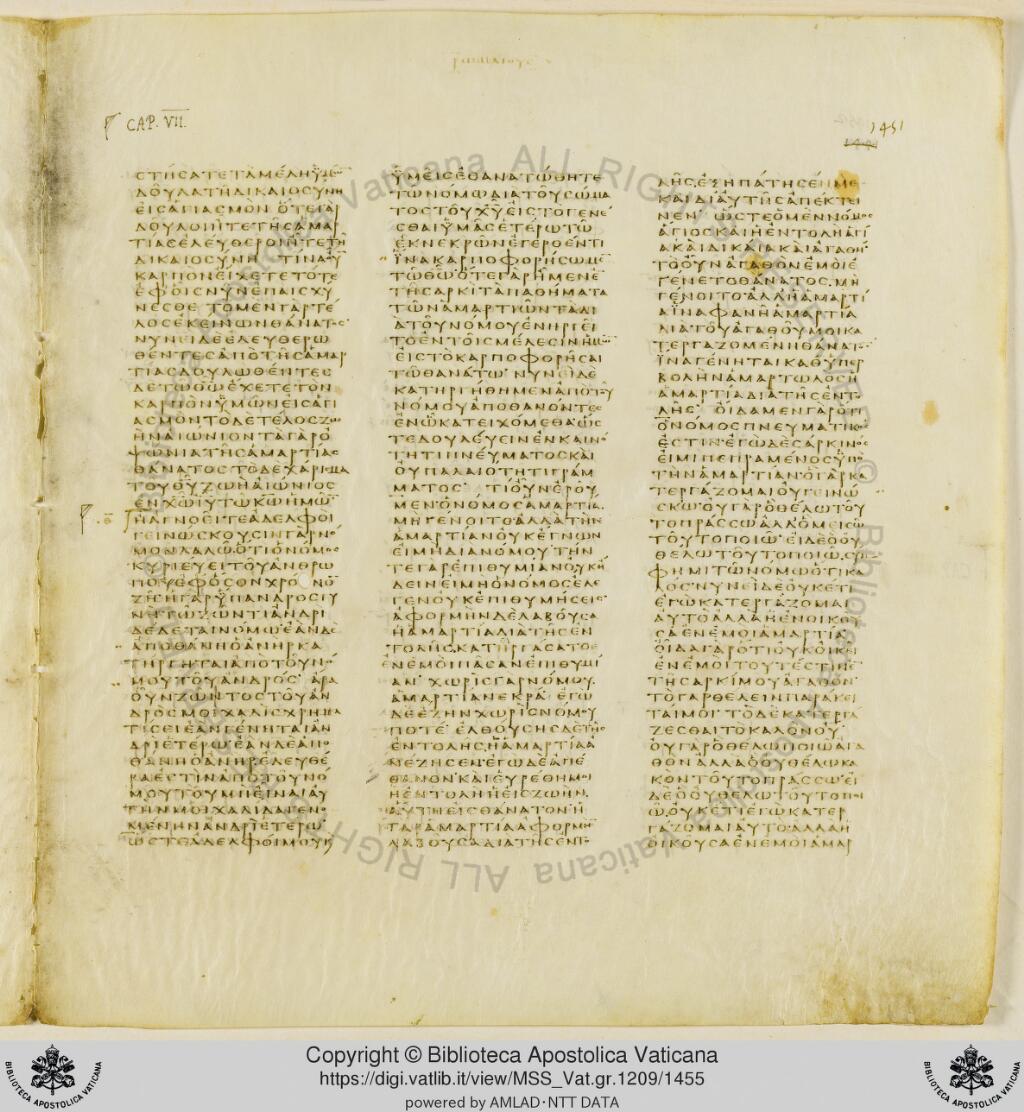 ΡΩΜΑΙΟΥϹ
CAP. VII.
1451
ϹΤΗϹΑΤΕΤΑΜΕΛΗΫΜΩ̅
ΔΟΥΛΑΤΗΔΙΚΑΙΟϹΥΝΗ
ΕΙϹΑΓΙΑϹΜΟΝ ΟΤΕΓΑΡ
ΔΟΥΛΟΙΗΤΕΤΗϹΑΜΑΡ
ΤΙΑϹΕΛΕΥΘΕΡΟΙΗΤΕΤΗ
ΔΙΚΑΙΟϹΥΝΗ ΤΙΝΑΟΥ̅
ΚΑΡΠΟΝΕΙΧΕΤΕΤΟΤΕ
ΕΦΟΙϹΝΥΝΕΠΑΙϹΧΥ
ΝΕϹΘΕ ΤΟΜΕΝΓΑΡΤΕ
ΛΟϹΕΚΕΙΝΩΝΘΑΝΑΤΟϹ
ΝΥΝΕΙΔΕΕΛΕΥΘΕΡΩ
ΘΕΝΤΕϹΑΠΟΤΗϹΑΜΑΡ
ΤΙΑϹΔΟΥΛΩΘΕΝΤΕϹ
ΔΕΤΩΘ̅Ω̅ΕΧΕΤΕΤΟΝ
ΚΑΡΠΟΝΫΜΩΝΕΙϹΑΓΙ
ΑϹΜΟΝΤΟΔΕΤΕΛΟϹΖΩ
ΗΝΑΙΩΝΙΟΝΤΑΓΑΡΟ
ΨΩΝΙΑΤΗϹΑΜΑΡΤΙΑϹ
ΘΑΝΑΤΟϹΤΟΔΕΧΑΡΙϹΜΑ
ΤΟΥΘ̅Υ̅ΖΩΗΑΙΩΝΙΟϹ
ΕΝΧ̅Ω̅Ι̅Υ̅ΤΩΚ̅Ω̅ΗΜΩ̅
ΗΑΓΝΟΕΙΤΕΑΔΕΛΦΟΙ
ΓΕΙΝΩϹΚΟΥϹΙΝΓΑΡΝΟ
ΜΟΝΛΑΛΩΟΤΙΟΝΟΜΟϹ
ΚΥΡΙΕΥΕΙΤΟΥΑΝΘΡΩ
ΠΟΥΕΦΟϹΟΝΧΡΟΝΟ̅
ΖΗ ΗΓΑΡΫΠΑΝΔΡΟϹΓΥ
ΝΗΤΩΖΩΝΤΙΑΝΔΡΙ
ΔΕΔΕΤΑΙΝΟΜΩΕΑΝΔΕ
ΑΠΟΘΑΝΗΟΑΝΗΡΚΑ
ΤΗΡΓΗΤΑΙΑΠΟΤΟΥΝΟ
ΜΟΥΤΟΥΑΝΔΡΟϹ ΑΡΑ
ΟΥΝΖΩΝΤΟϹΤΟΥΑΝ
ΔΡΟϹΜΟΙΧΑΛΙϹΧΡΗΜΑ
ΤΙϹΕΙΕΑΝΓΕΝΗΤΑΙΑΝ
ΔΡΙΕΤΕΡΩ ΕΑΝΔΕΑΠΟ
ΘΑΝΗΟΑΝΗΡΕΛΕΥΘΕ
ΡΑΕϹΤΙΝΑΠΟΤΟΥΝΟ
ΜΟΥΤΟΥΜΗΕΙΝΑΙΑΥ
ΤΗΝΜΟΙΧΑΛΙΔΑΓΕΝΟ
ΜΕΝΗΝΑΝΔΡΙΕΤΕΡΩ
ΩϹΤΕΑΔΕΛΦΟΙΜΟΥΚ
ΫΜΕΙϹΕΘΑΝΑΤΩΘΗΤΕ
ΤΩΝΟΜΩΔΙΑΤΟΥϹΩΜΑ
ΤΟϹΤΟΥΧ̅Υ̅ΕΙϹΤΟΓΕΝΕ
ϹΘΑΙΫΜΑϹΕΤΕΡΩΤΩ
ΕΚΝΕΚΡΩΝΕΓΕΡΘΕΝΤΙ
ΪΝΑΚΑΡΠΟΦΟΡΗϹΩΜΕ̅
ΤΩΘ̅Ω̅ΟΤΕΓΑΡΗΜΕΝΕ̅
ΤΗϹΑΡΚΙΤΑΠΑΘΗΜΑΤΑ
ΤΩΝΑΜΑΡΤΙΩΝΤΑΔΙ
ΑΤΟΥΝΟΜΟΥΕΝΗΡΓΕΙ
ΤΟΕΝΤΟΙϹΜΕΛΕϹΙΝΗΜΩ̅
ΕΙϹΤΟΚΑΡΠΟΦΟΡΗϹΑΙ
ΤΩΘΑΝΑΤΩ ΝΥΝΕΙΔΕ
ΚΑΤΗΡΓΗΘΗΜΕΝΑΠΟΤΟΥ
ΝΟΜΟΥΑΠΟΘΑΝΟΝΤΕϹ
ΕΝΩΚΑΤΕΙΧΟΜΕΘΑΩϹ
ΤΕΔΟΥΛΕΥΕΙΝΕΝΚΑΙΝΟ
ΤΗΤΙΠΝΕΥΜΑΤΟϹΚΑΙ
ΟΥΠΑΛΑΙΟΤΗΤΙΓΡΑΜ
ΜΑΤΟϹ ΤΙΟΥΝΕΡΟΥ
ΜΕΝΟΝΟΜΟϹΑΜΑΡΤΙΑ
ΜΗΓΕΝΟΙΤΟΑΛΛΑΤΗΝ
ΑΜΑΡΤΙΑΝΟΥΚΕΓΝΩΝ
ΕΙΜΗΔΙΑΝΟΜΟΥΤΗΝ
ΤΕΓΑΡΕΠΙΘΥΜΙΑΝΟΥΚΗ
ΔΕΙΝΕΙΜΗΟΝΟΜΟϹΕΛΕ
ΓΕΝΟΥΚΕΠΙΘΥΜΗϹΕΙϹ
ΑΦΟΡΜΗΝΔΕΛΑΒΟΥϹΑ
ΗΑΜΑΡΤΙΑΔΙΑΤΗϹΕΝ
ΤΟΛΗϹΚΑΤΗΡΓΑϹΑΤΟ
ΕΝΕΜΟΙΠΑϹΑΝΕΠΙΘΥΜΙ
ΑΝ ΧΩΡΙϹΓΑΡΝΟΜΟΥ
ΑΜΑΡΤΙΑΝΕΚΡΑ ΕΓΩ
ΔΕΕΖΗΝΧΩΡΙϹΝΟΜΟΥ
ΠΟΤΕ ΕΛΘΟΥϹΗϹΔΕΤΗϹ
ΕΝΤΟΛΗϹΗΑΜΑΡΤΙΑΑ
ΝΕΖΗϹΕΝΕΓΩΔΕΑΠΕ
ΘΑΝΟΝΚΑΙΕΥΡΕΘΗΜΟΙ
ΗΕΝΤΟΛΗΗΕΙϹΖΩΗΝ
ΑΥΤΗΕΙϹΘΑΝΑΤΟΝΗ
ΓΑΡΑΜΑΡΤΙΑΑΦΟΡΜΗ̅
ΛΑΒΟΥϹΑΔΙΑΤΗϹΕΝΤΟ
ΛΗϹΕΞΗΠΑΤΗϹΕΝΜΕ
ΚΑΙΔΙΑΥΤΗϹΑΠΕΚΤΕΙ
ΝΕΝ ΩϹΤΕΟΜΕΝΝΟΜΟϹ
ΑΓΙΟϹΚΑΙΗΕΝΤΟΛΗΑΓΙ
ΑΚΑΙΔΙΚΑΙΑΚΑΙΑΓΑΘΗ
ΤΟΟΥΝΑΓΑΘΟΝΕΜΟΙΕ
ΓΕΝΕΤΟΘΑΝΑΤΟϹ ΜΗ
ΓΕΝΟΙΤΟΑΛΛΗΑΜΑΡΤΙ
ΑΪΝΑΦΑΝΗΑΜΑΡΤΙΑ
ΔΙΑΤΟΥΑΓΑΘΟΥΜΟΙΚΑ
ΤΕΡΓΑΖΟΜΕΝΗΘΑΝΑΤΟ̅
ΪΝΑΓΕΝΗΤΑΙΚΑΘΥΠΕΡ
ΒΟΛΗΝΑΜΑΡΤΩΛΟϹΗ
ΑΜΑΡΤΙΑΔΙΑΤΗϹΕΝΤΟ
ΛΗϹ ΟΙΔΑΜΕΝΓΑΡΟΤΙ
ΟΝΟΜΟϹΠΝΕΥΜΑΤΙΚΟϹ
ΕϹΤΙΝΕΓΩΔΕϹΑΡΚΙΝΟϹ
ΕΙΜΙΠΕΠΡΑΜΕΝΟϹΥΠΟ
ΤΗΝΑΜΑΡΤΙΑΝΟΓΑΡΚΑ
ΤΕΡΓΑΖΟΜΑΙΟΥΓΕΙΝΩ
ϹΚΩΟΥΓΑΡΟΘΕΛΩΤΟΥ
ΤΟΠΡΑϹϹΩΑΛΛΟΜΕΙϹΩ
ΤΟΥΤΟΠΟΙΩ ΕΙΔΕΟΟΥ
ΘΕΛΩΤΟΥΤΟΠΟΙΩϹΥ̅
ΦΗΜΙΤΩΝΟΜΩΟΤΙΚΑ
ΛΟϹΝΥΝΕΙΔΕΟΥΚΕΤΙ
ΕΓΩΚΑΤΕΡΓΑΖΟΜΑΙ
ΑΥΤΟΑΛΛΑΗΕΝΟΙΚΟΥ
ϹΑΕΝΕΜΟΙΑΜΑΡΤΙΑ
ΟΙΔΑΓΑΡΟΤΙΟΥΚΟΙΚΕΙ
ΕΝΕΜΟΙΤΟΥΤΕϹΤΙΝΕΝ
ΤΗϹΑΡΚΙΜΟΥΑΓΑΘΟΝ
ΤΟΓΑΡΘΕΛΕΙΝΠΑΡΑΚΕΙ
ΤΑΙΜΟΙ ΤΟΔΕΚΑΤΕΡΓΑ
ΖΕϹΘΑΙΤΟΚΑΛΟΝΟΥ
ΟΥΓΑΡΟΘΕΛΩΠΟΙΩΑΓΑ
ΘΟΝΑΛΛΑΟΟΥΘΕΛΩΚΑ
ΚΟΝΤΟΥΤΟΠΡΑϹϹΩΕΙ
ΔΕΟΟΥΘΕΛΩΤΟΥΤΟΠΟΙ
ΩΟΥΚΕΤΙΕΓΩΚΑΤΕΡ
ΓΑΖΟΜΑΙΑΥΤΟΑΛΛΑΗ
ΟΙΚΟΥϹΑΕΝΕΜΟΙΑΜΑΡ
Copyright © Biblioteca Apostolica Vaticana
https://digi.vatlib.it/view/MSS_Vat.gr.1209/1455
powered by AMLAD·NTT DATA
BIBLIOTECA APOSTOLICA VATICANA
BIBLIOTECA APOSTOLICA VATICANA